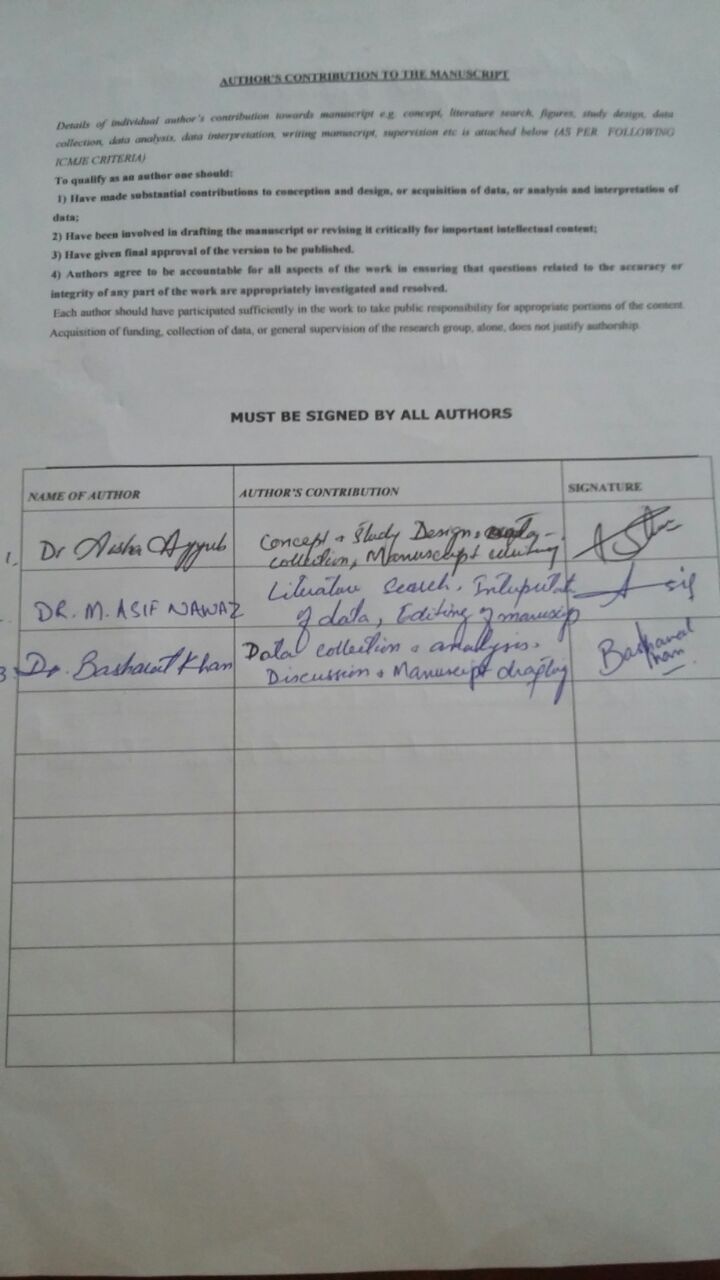 AUTHOR'S CONTRIBUTION TO THE MANUSCRIPT
Details of individual author's contribution towards manuscript e.g. concept, literature search, figures, study design, data
collection, data analysis, data interpretation, writing manuscript, supervision etc is attached below (AS PER FOLLOWING
ICMJE CRITERIA)
To qualify as an author one should:
1) Have made substantial contributions to conception and design, or acquisition of data, or analysis and interpretation of
data;
2) Have been involved in drafting the manuscript or revising it critically for important intellectual content;
3) Have given final approval of the version to be published.
4) Authors agree to be accountable for all aspects of the work in ensuring that questions related to the accuracy or
integrity of any part of the work are appropriately investigated and resolved.
Each author should have participated sufficiently in the work to take public responsibility for appropriate portions of the content.
Acquisition of funding, collection of data, or general supervision of the research group, alone, does not justify authorship.
MUST BE SIGNED BY ALL AUTHORS
NAME OF AUTHOR AUTHOR'S CONTRIBUTION SIGNATURE
1. Dr Aisha Ayyub Concept & Study Design,
collection, Manuscript writing
DR. M. ASIF NAWAZ Literature search, Interpretat
of data, Editing of manuscrip Asif
3 Dr. Basharat Khan Data collection & analysis. Basharat
Discussion & Manuscript drafting Khan